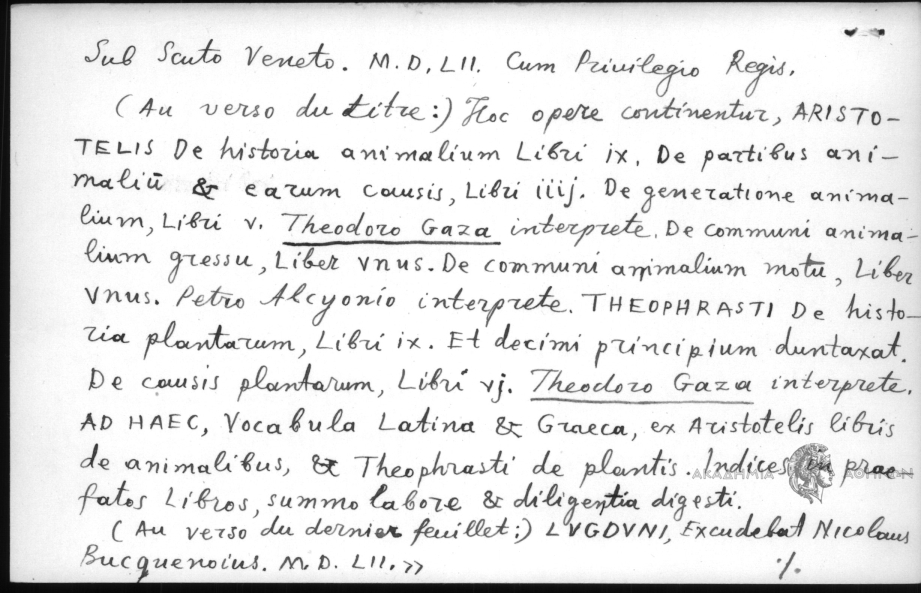 Sub Scuto Veneto. M.D.LII. Cum Priuilegio Regis.
(Au verso du titre:) Hoc opere continentur, ARISTO-
TELIS De historia animalium Libri ix. De partibus ani-
maliū & earum causis, Libri iiij. De generatione anima-
lium, Libri v. Theodoro Gaza interprete. De communi anima-
lium gressu, Liber vnus. De communi animalium motu, Liber
vnus. Petro Alcyonio interprete. THEOPHRASTI De histo-
ria plantarum, Libri ix. Et decimi principium duntaxat.
De causis plantarum, Libri vj. Theodoro Gaza interprete.
AD HAEC, Vocabula Latina & Graeca, ex Aristotelis libris
de animalibus, & Theophrasti de plantis. Indices in prae-
fatos Libros, summo labore & diligentia digesti.
(Au verso du dernier feuillet:) LVGDVNI, Excudebat Nicolaus
Bucquenoius. M.D.LII.»
·/.
ΑΚΑΔΗΜΙΑ ΑΘΗΝΩΝ